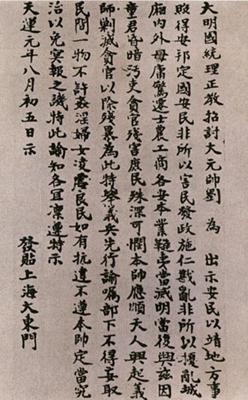 大明國統理正教招討大元帥劉　為　出示安民以靖地方事
照得安邦定國安民非所以害民發政施仁戡亂非所以擾亂城
廂內外毋庸驚遑士農工商各安本業雖字當滅明當復與茲因
童君昏暗污吏貪官殘害庶民殊深可憫本帥應順天人興起義
師剿滅貪官以除殘暴為此特舉義兵先行諭囑部下不得妄取
民間一物不許姦淫婦女凌辱良民如有抗違不遵本帥定當究
治以免冤報之譏特此諭知各宜凜遵特示
天運元年八月初五日示
發貼上海大東門